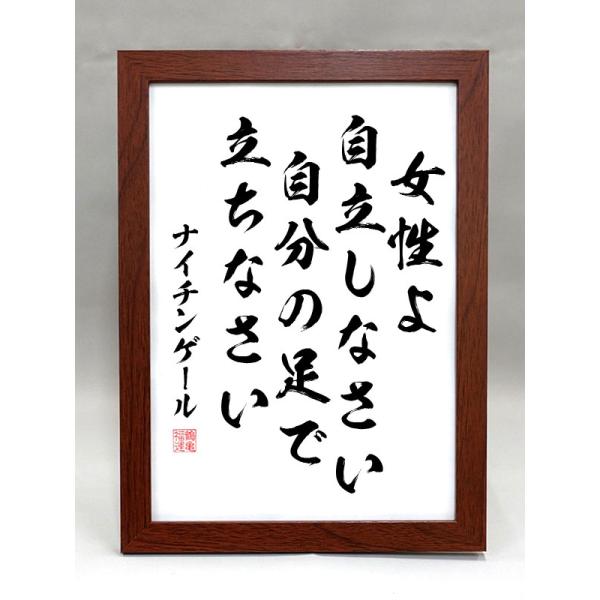 女性よ
自立しなさい
自分の足で
立ちなさい
ナイチンゲール
鶴亀
福運